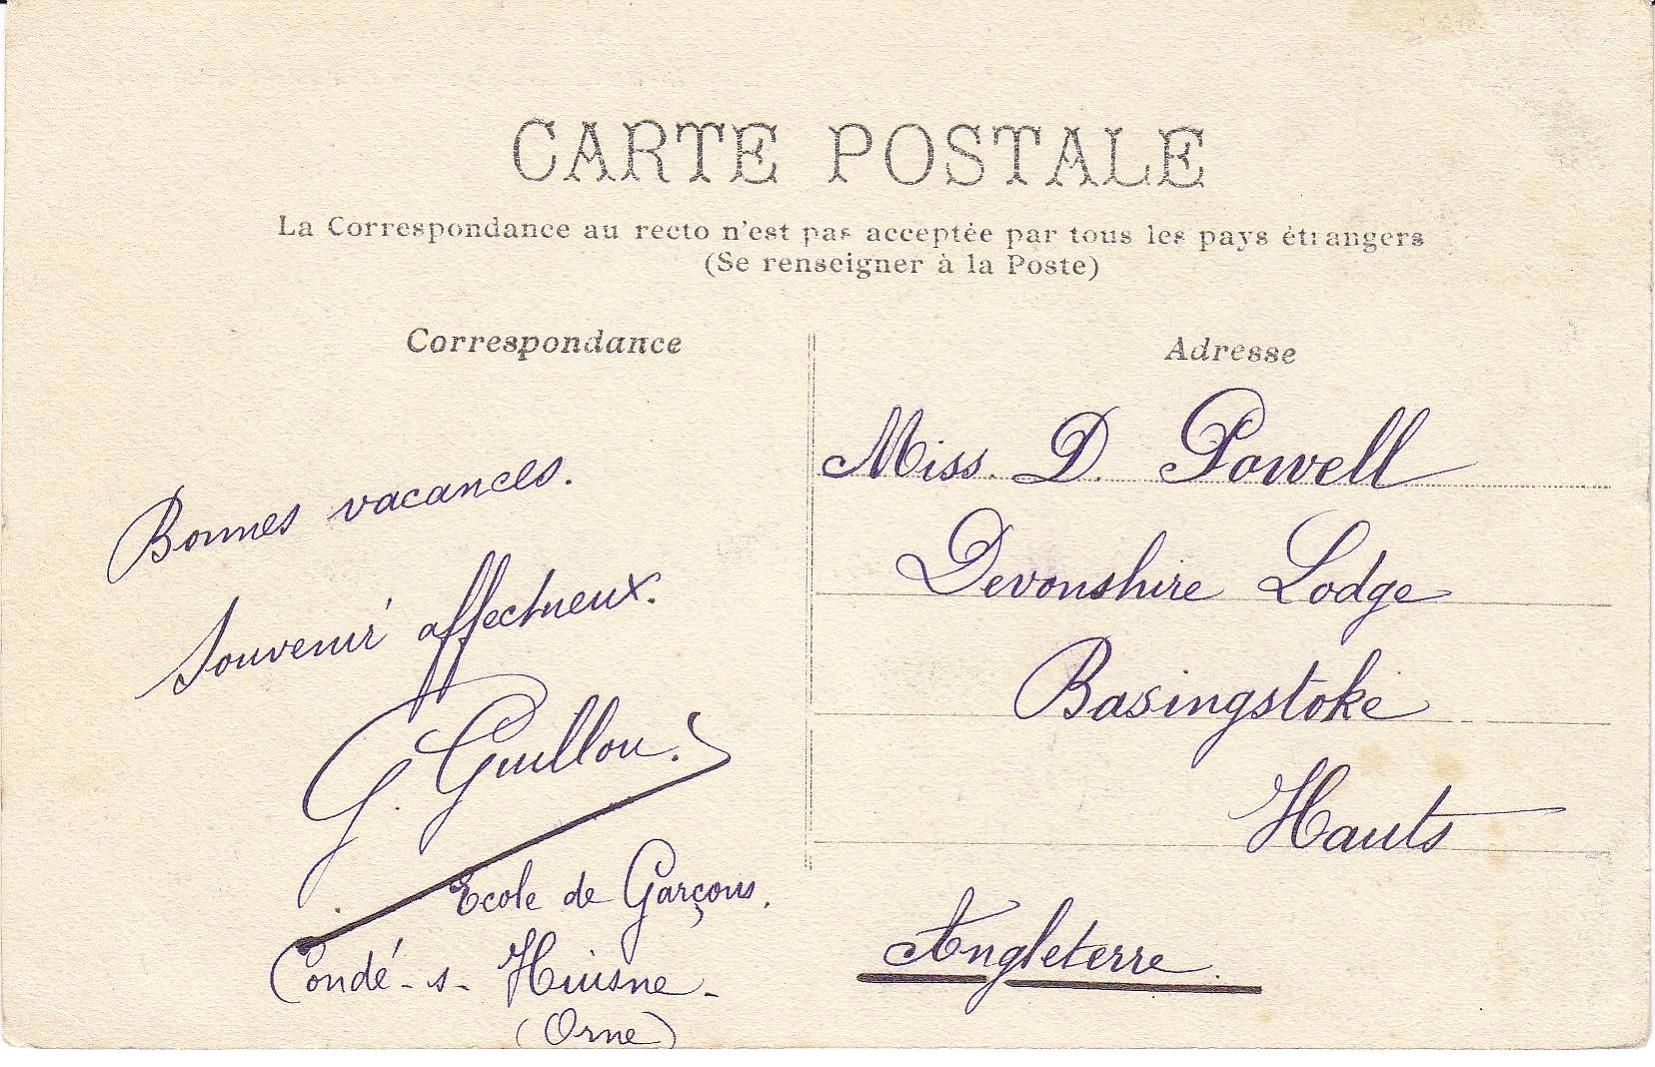 CARTE POSTALE
La Correspondance au recto n'est pas acceptée par tous les pays étrangers
(Se renseigner à la Poste)
Correspondance
Bonnes vacances.
Souvenir affectueux.
G. Guillou.
Ecole de Garçons.
Condé-s-Huisne-
(Orne)
Adresse
Miss. D. Powell
Devonshire Lodge
Basingstoke
Hauts
Angleterre.